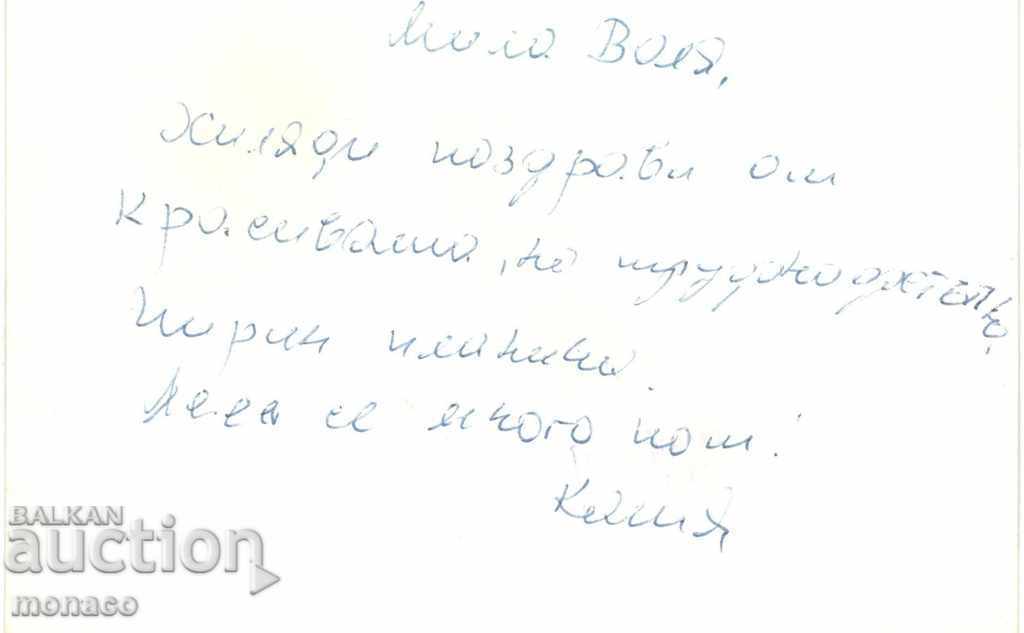 Мила Валя,
Хиляди поздрави от
красивата, но труднодостъпна
Пирин планина.
Лее се много пот!
Катя
BALKAN
auction
monaco